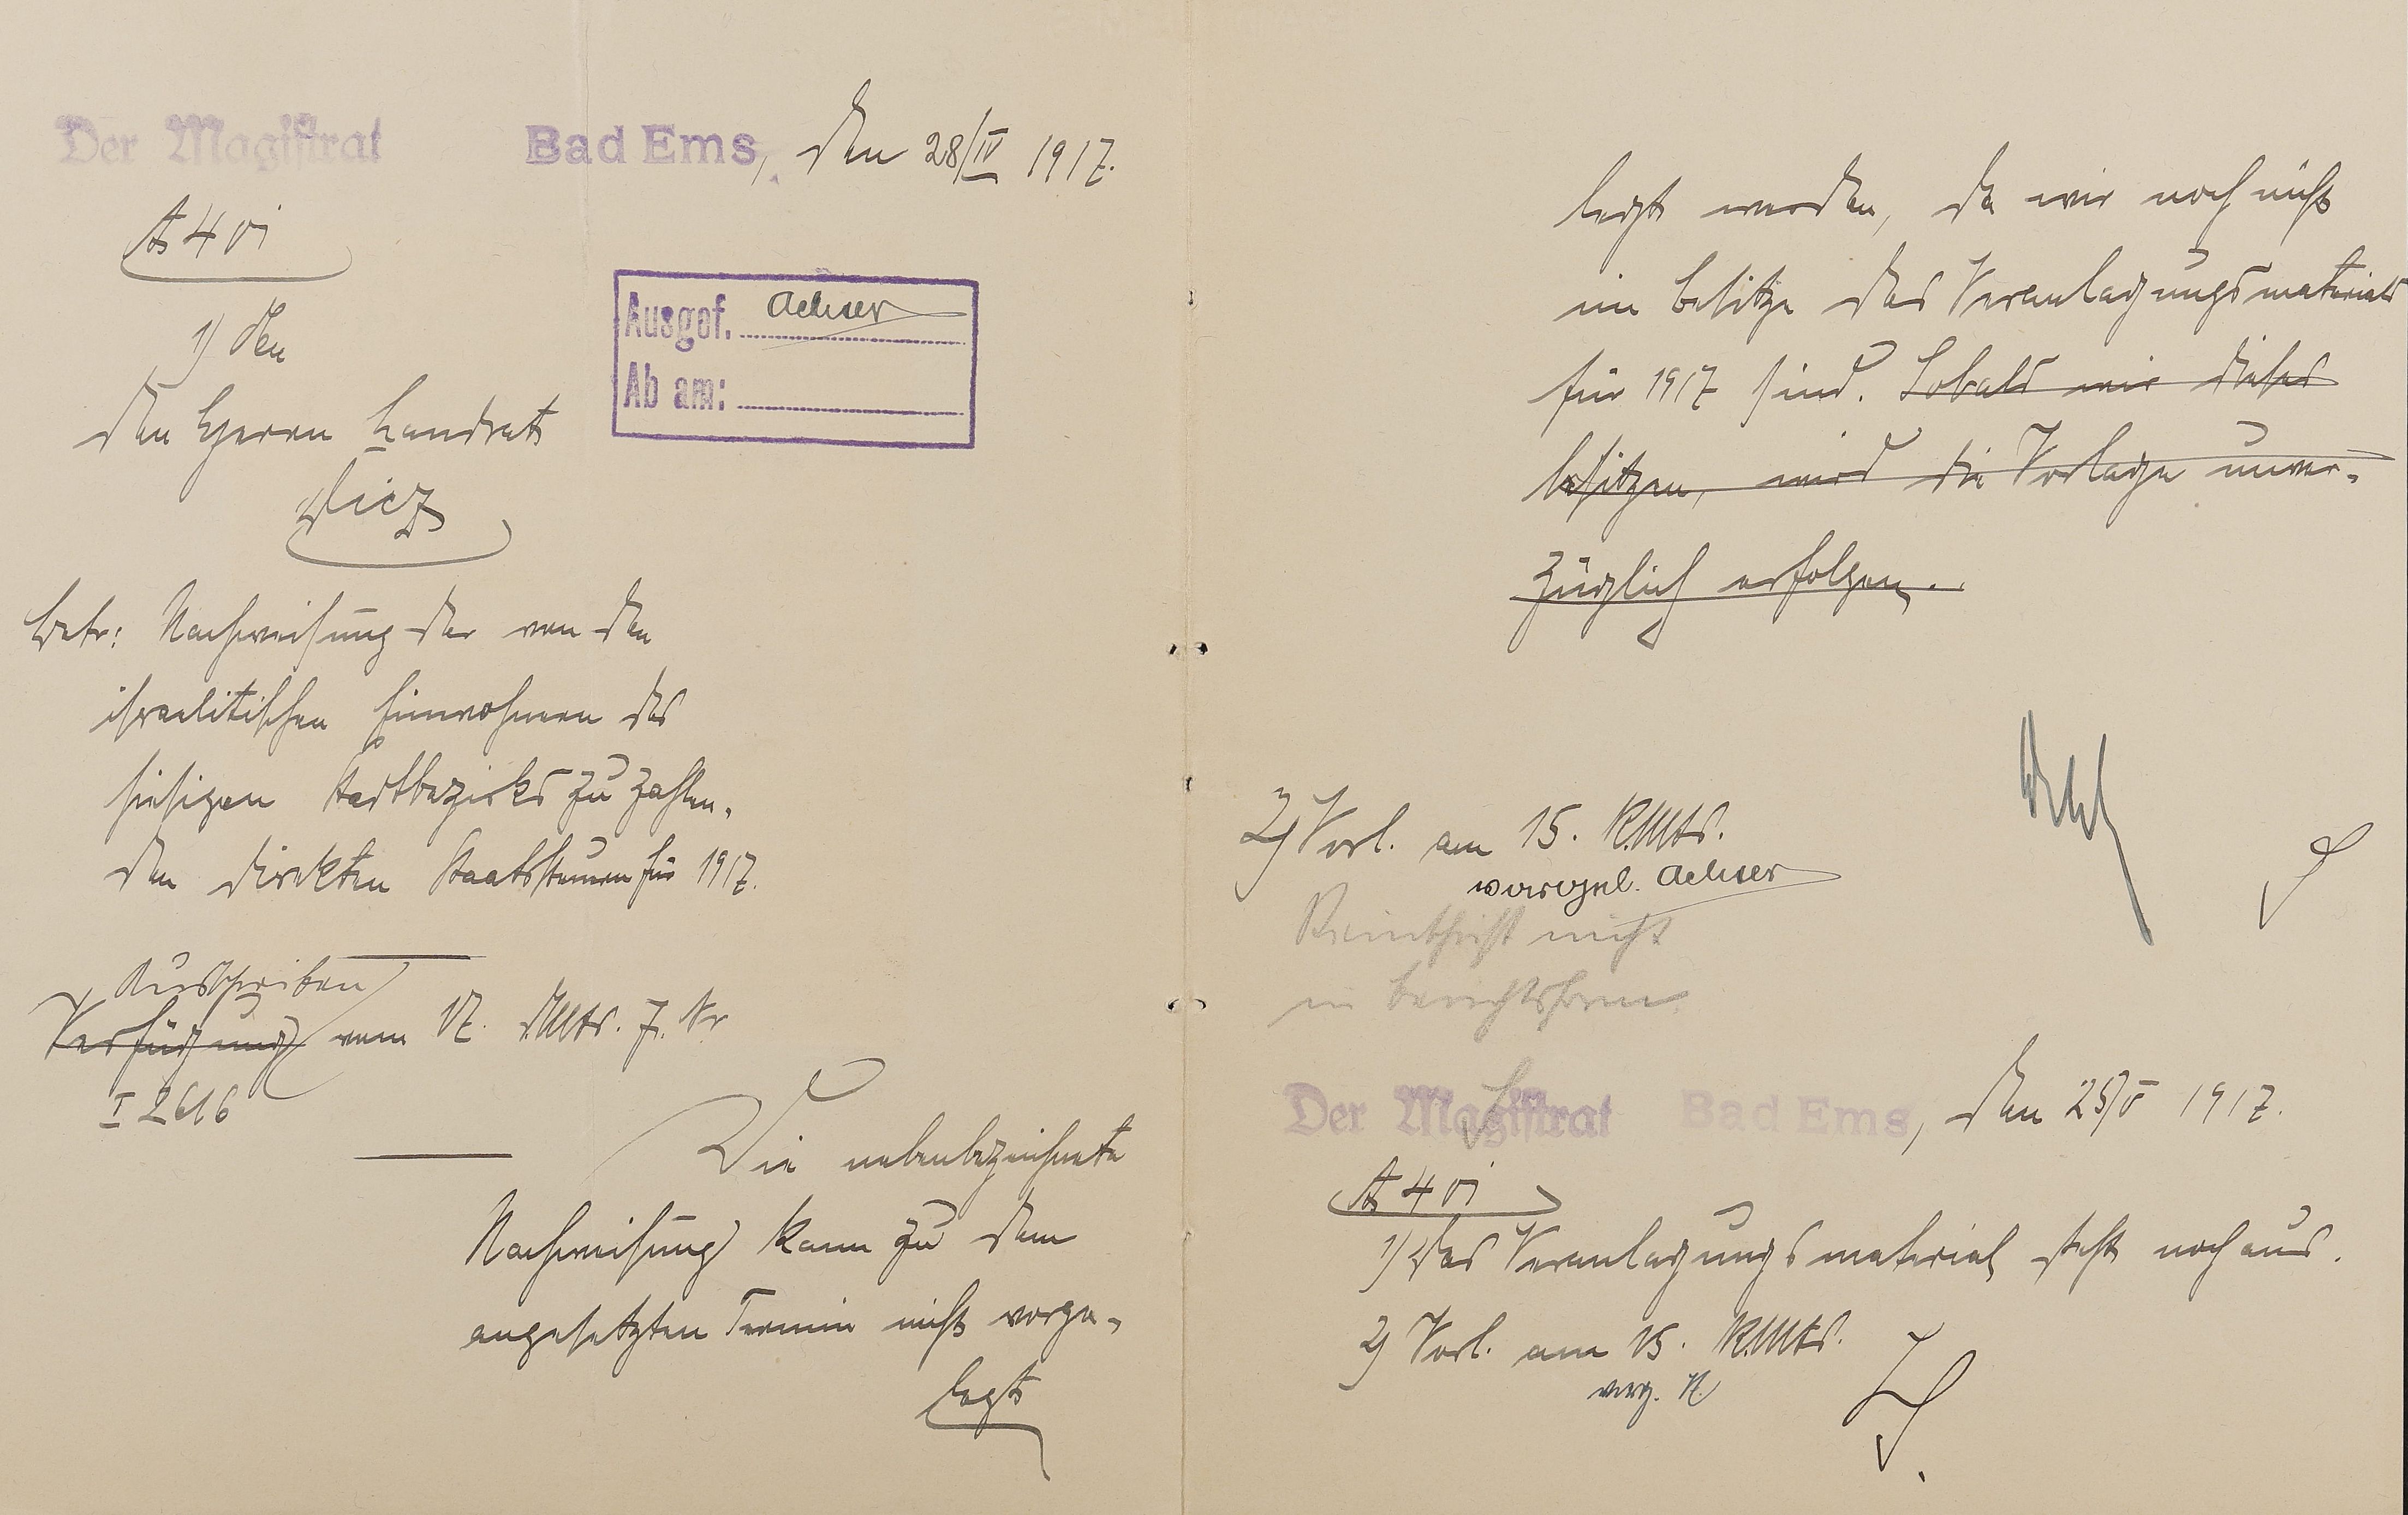 Der Magistrat
Bad Ems, den 28/IV 1917.
A 4 oi
Ausgef. Achser
Ab am:
1) An
den Herrn Landrat
Diez
Betr: Nachweisung der von den
israelitischen Einwohnern des
hiesigen Stadtbezirks zu zahlen-
den direkten Staatssteuern für 1917.
Ausschreiben
Verfügung vom 17. d. Mts. J. Nr
I 2616
Die nebenbezeichnete
Nachweisung kann zu dem
angesetzten Termin nicht vorge-
legt
legt werden, da wir noch nicht
im Besitze des Veranlagungsmaterials
für 1917 sind. Sobald wir dieses
besitzen, wird die Vorlage unver-
züglich erfolgen.
2) Vorl. am 15. k. Mts.
vorgel. Achser
Reinschrift nicht
in Berichtsform
Der Magistrat Bad Ems, den 25/V 1917.
A 4 oi
1) Das Veranlagungsmaterial steht noch aus.
2) Vorl. am 15. k. Mts.
vorg.